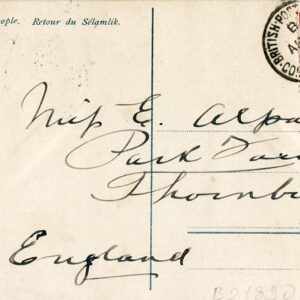 ople. Retour du Sélamlik.
BRITISH·POS
CON
Miss E. Alpa
Park Far
Thornb
England
B21890